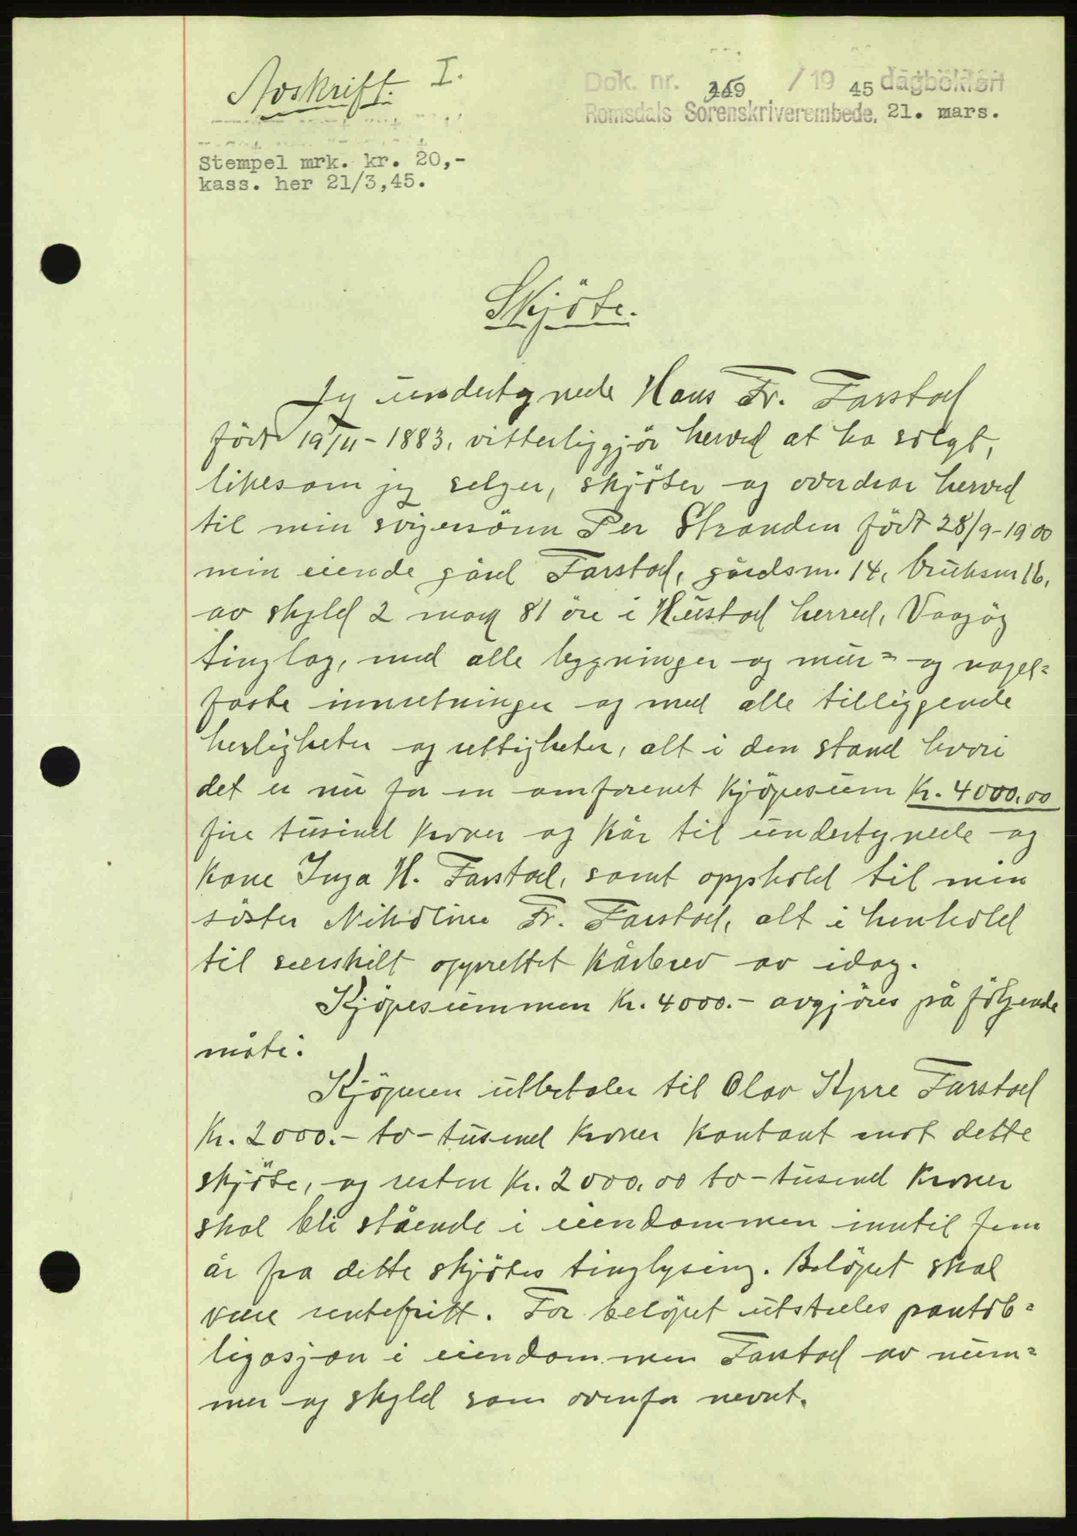 Avskrift. I.
Dok. nr. 449 / 19 45 dagbokført
Romsdals Sorenskriverembede. 21. mars.
Stempel mrk. kr. 20,-
kass. her 21/3,45.
Skjöte.
Jeg undertegnede Hans Fr. Farstad
födt 19/11-1883, vitterliggjör herved at ha solgt,
likesom jeg selger, skjöter og overdrar herved
til min svigersönn Per Stranden födt 28/9-1900
min eiende gård Farstad, gårdsnr. 14, bruksnr 16,
av skyld 2 mark 81 öre i Hustad herred, Vaagöy
tinglag, med alle bygninger og mur= og nagel=
faste innretninger og med alle tilliggende
herligheter og rettigheter, alt i den stand hvori
det er nu for en omforenet kjöpesum kr. 4000,00
fire tusind kroner og kår til undertegnede og
kone Inga H. Farstad, samt opphold til min
söster Nikoline Fr. Farstad, alt i henhold
til særskilt opprettet kårbrev av idag.
Kjöpesummen kr. 4000.- avgjöres på fölgende
måte:
Kjöperen utbetaler til Olav Kyrre Farstad
kr. 2000.- to-tusend kroner kontant mot dette
skjöte, og resten kr. 2000,00 to-tusend kroner
skal bli stående i eiendommen inntil fem
år fra dette skjötes tinglysing. Belöpet skal
være rentefritt. For belöpet utstedes pantob=
ligasjon i eiendommen Farstad av num=
mer og skyld som ovenfor nevnt.